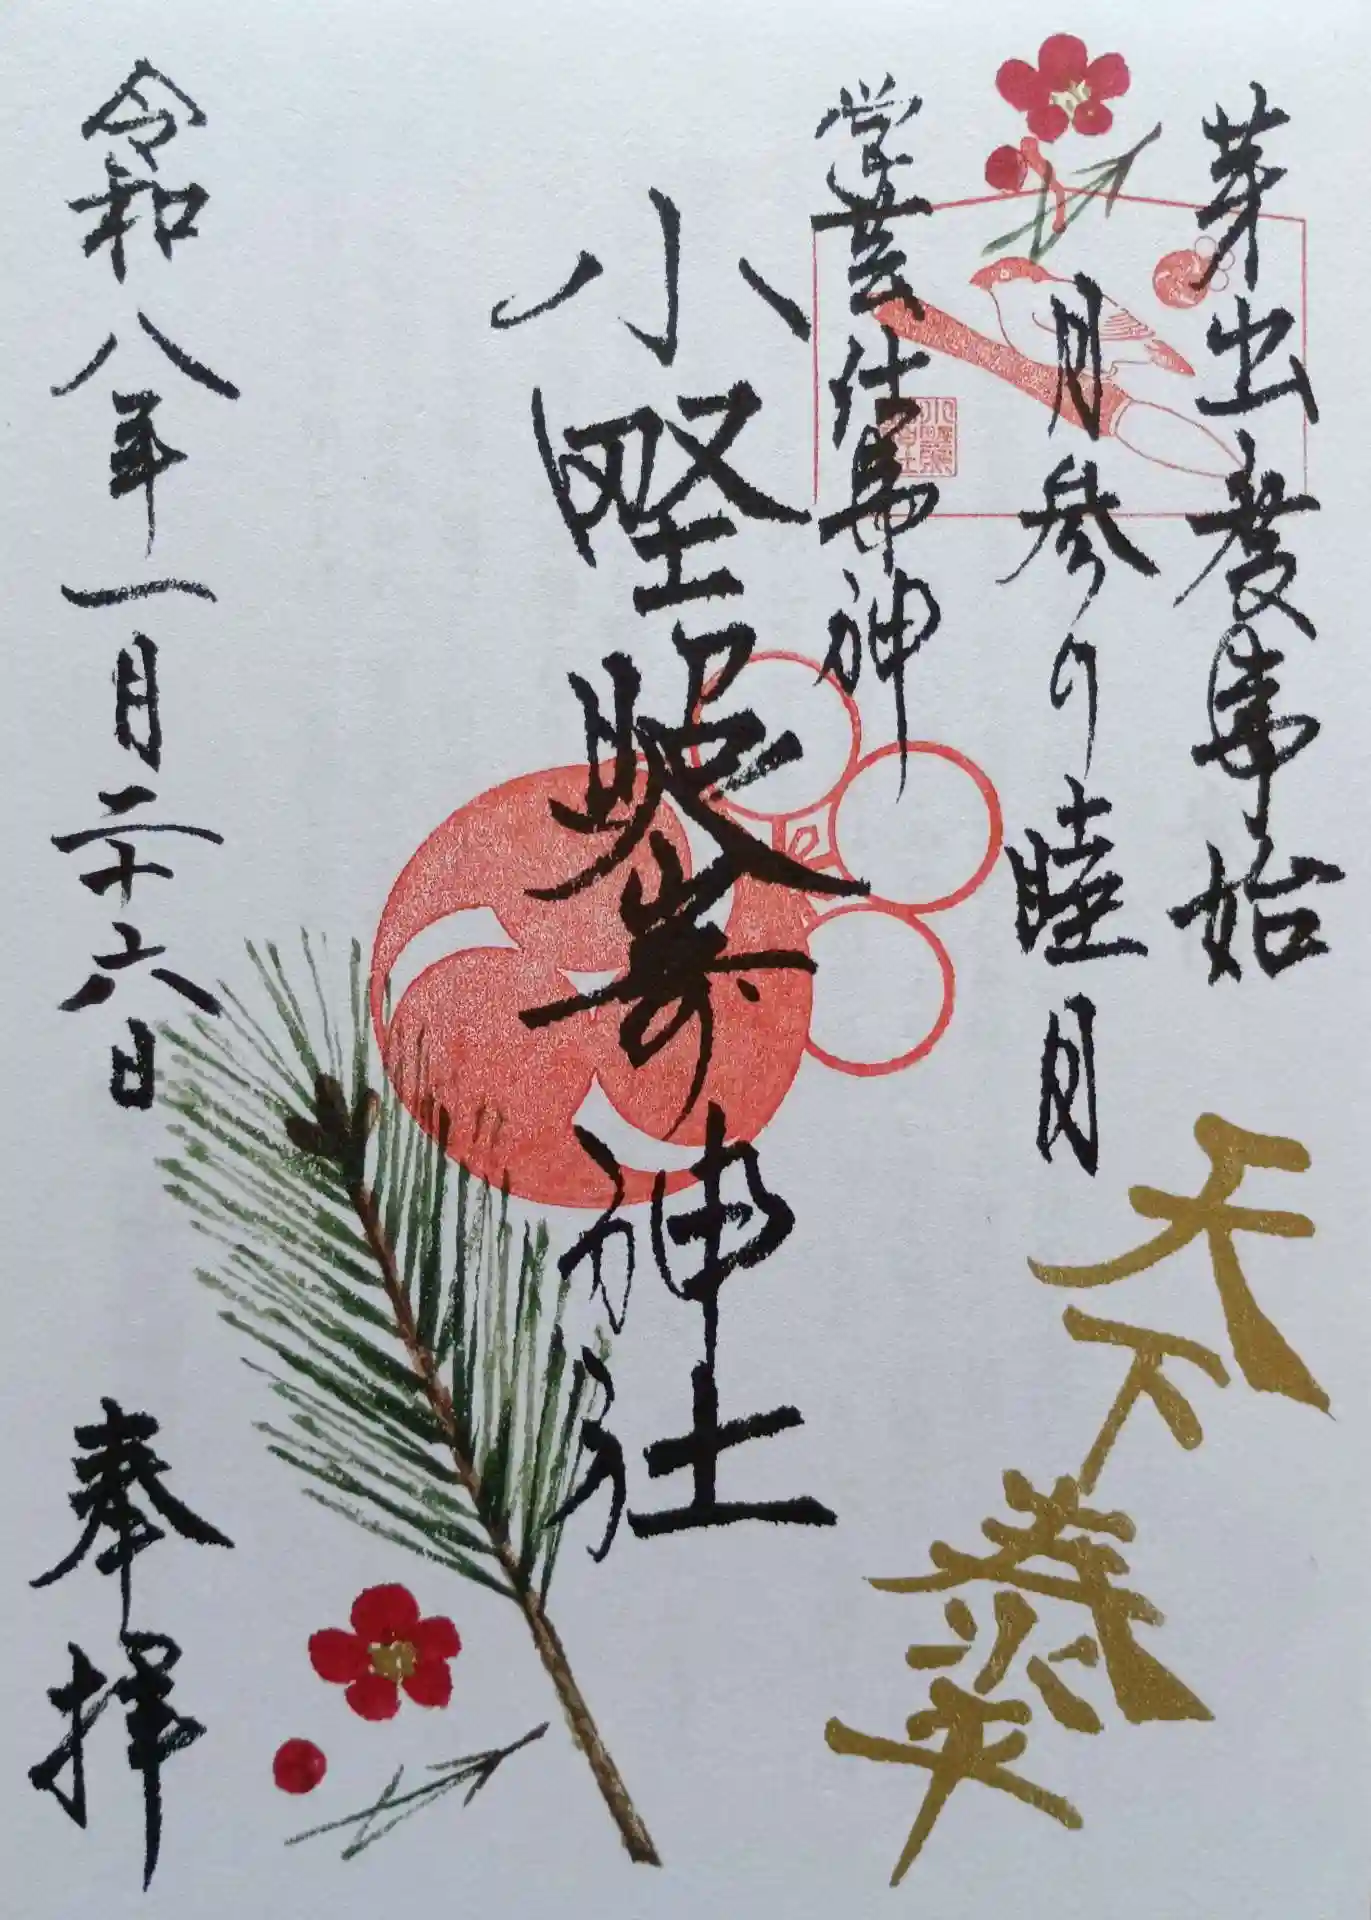 芽出度事始
月参り睦月
学芸仕事神
小野照崎神社
天下泰平
令和八年一月二十六日
奉拝